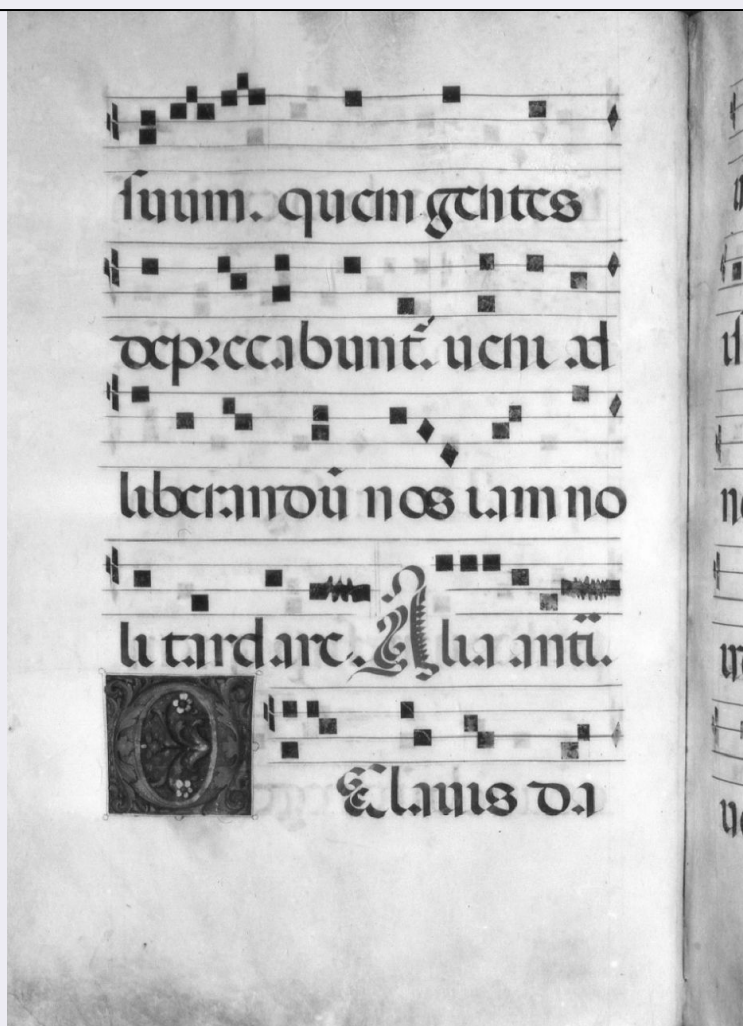 suum. quem gentes
deprecabunt̄. ueni ad
liberandū nos iam no
li tardare. Alia antī.
O Clauis da